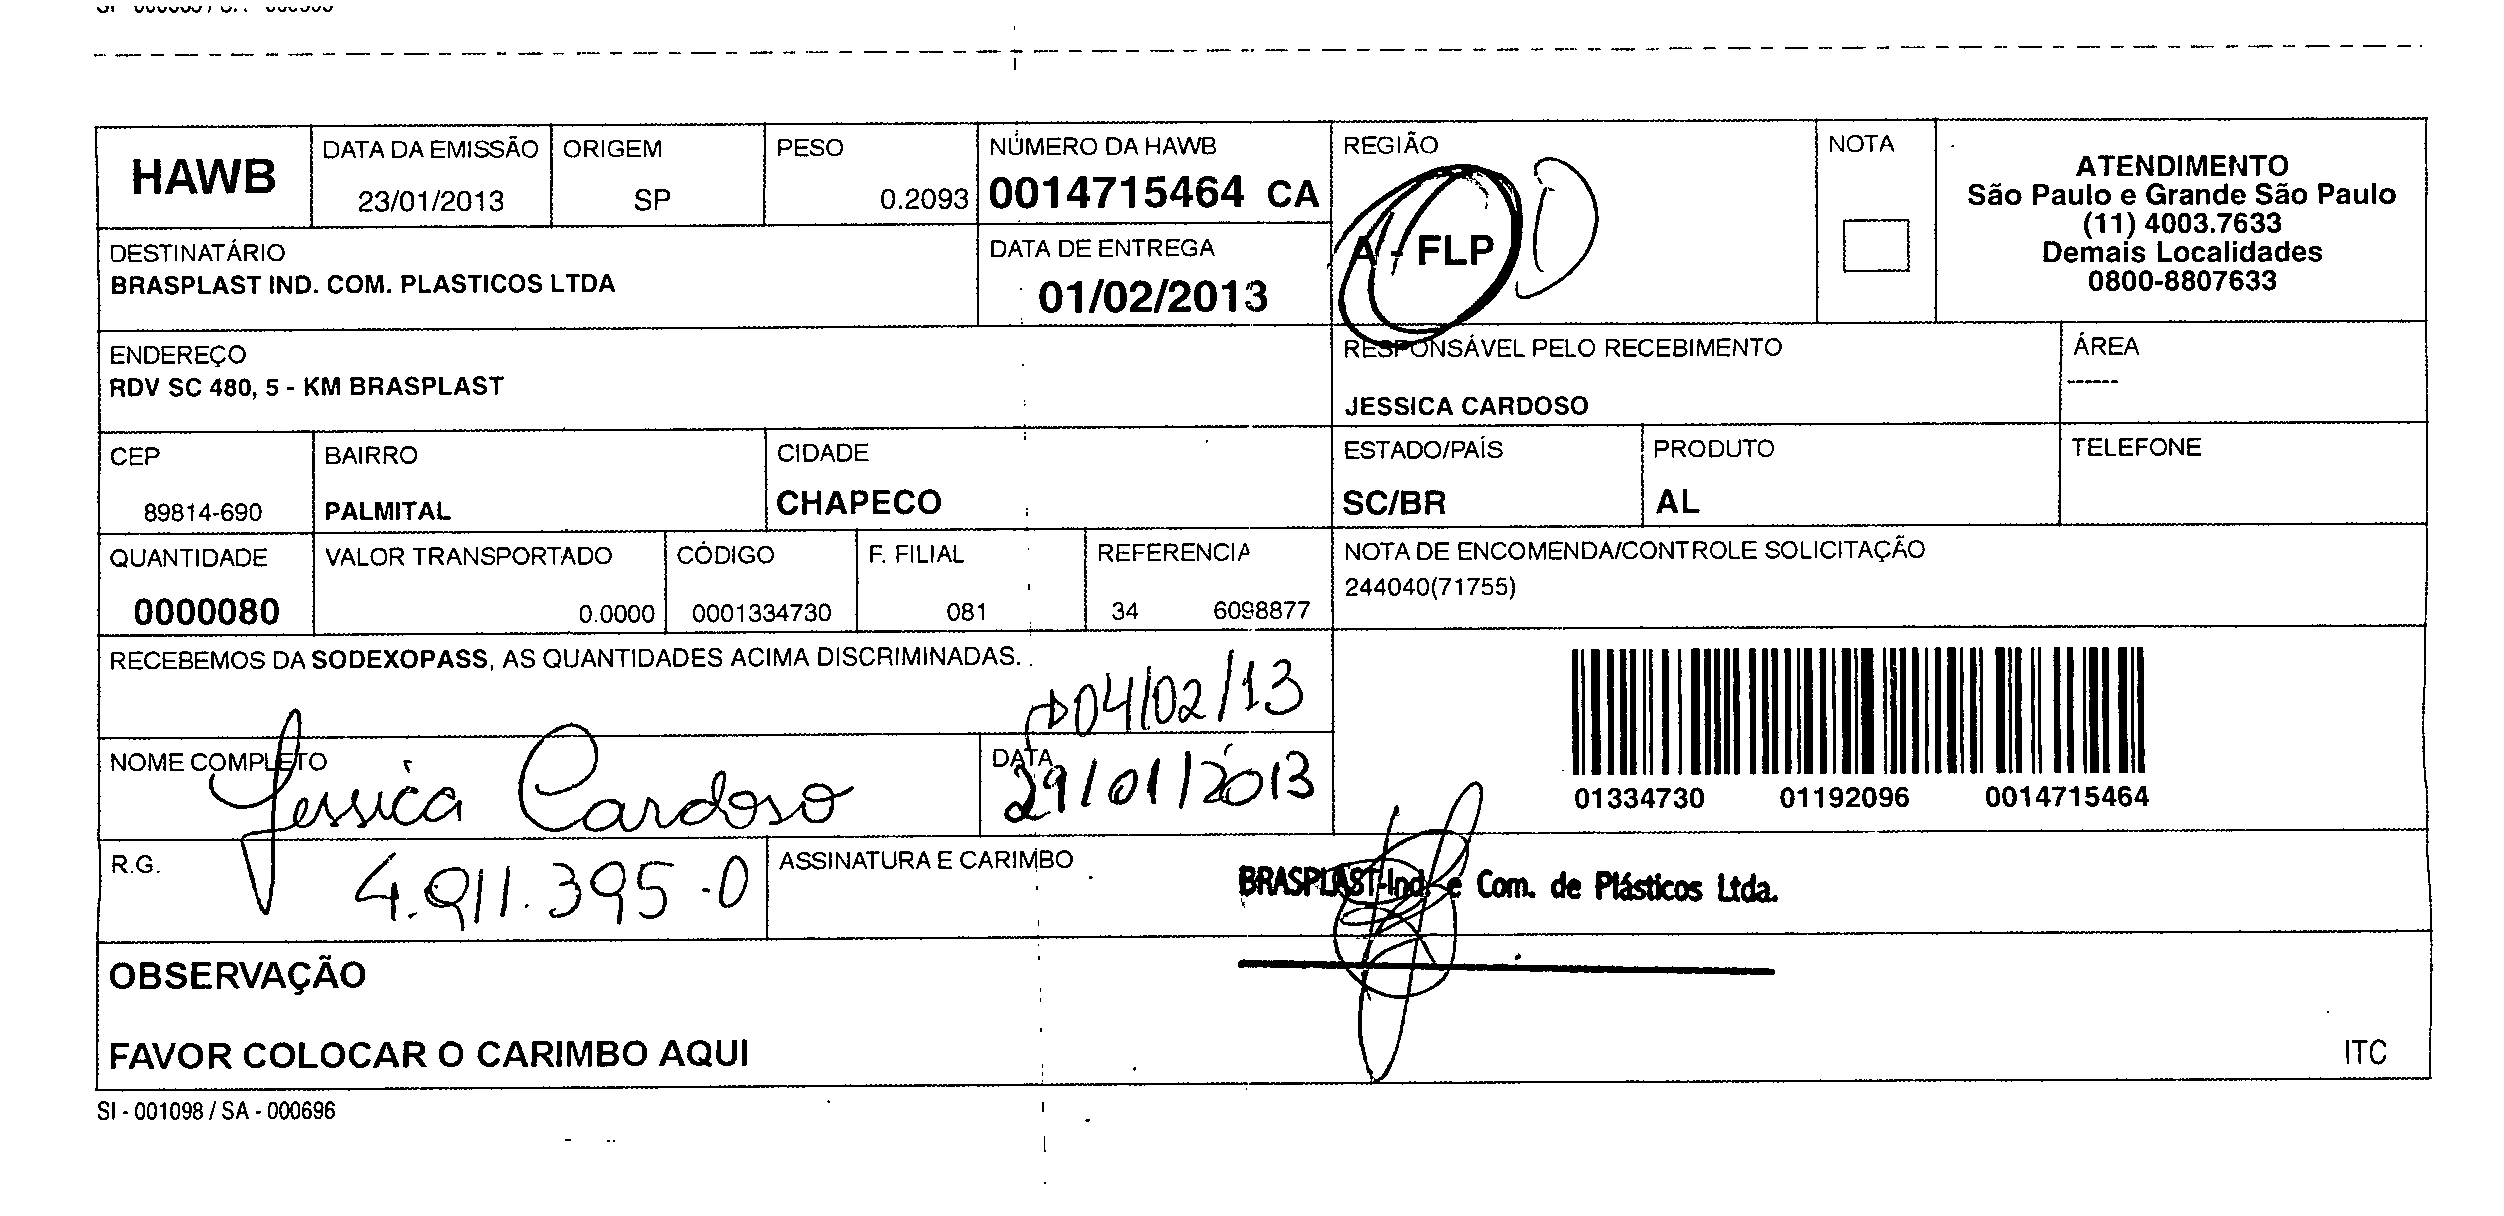 HAWB
DATA DA EMISSÃO
23/01/2013
ORIGEM
SP
PESO
0.2093
NÚMERO DA HAWB
0014715464 CA
REGIÃO
A - FLP
NOTA
ATENDIMENTO
São Paulo e Grande São Paulo
(11) 4003.7633
Demais Localidades
0800-8807633
DESTINATÁRIO
BRASPLAST IND. COM. PLASTICOS LTDA
DATA DE ENTREGA
01/02/2013
ENDEREÇO
RDV SC 480, 5 - KM BRASPLAST
RESPONSÁVEL PELO RECEBIMENTO
JESSICA CARDOSO
ÁREA
------
CEP
89814-690
BAIRRO
PALMITAL
CIDADE
CHAPECO
ESTADO/PAÍS
SC/BR
PRODUTO
AL
TELEFONE
QUANTIDADE
0000080
VALOR TRANSPORTADO
0.0000
CÓDIGO
0001334730
F. FILIAL
081
REFERENCIA
34 6098877
NOTA DE ENCOMENDA/CONTROLE SOLICITAÇÃO
244040(71755)
RECEBEMOS DA SODEXOPASS, AS QUANTIDADES ACIMA DISCRIMINADAS.
04/02/13
NOME COMPLETO
Jessica Cardoso
DATA
29/01/2013
01334730 01192096 0014715464
R.G.
4.911.395-0
ASSINATURA E CARIMBO
BRASPLAST-Ind. e Com. de Plásticos Ltda.
OBSERVAÇÃO
FAVOR COLOCAR O CARIMBO AQUI
ITC
SI - 001098 / SA - 000696